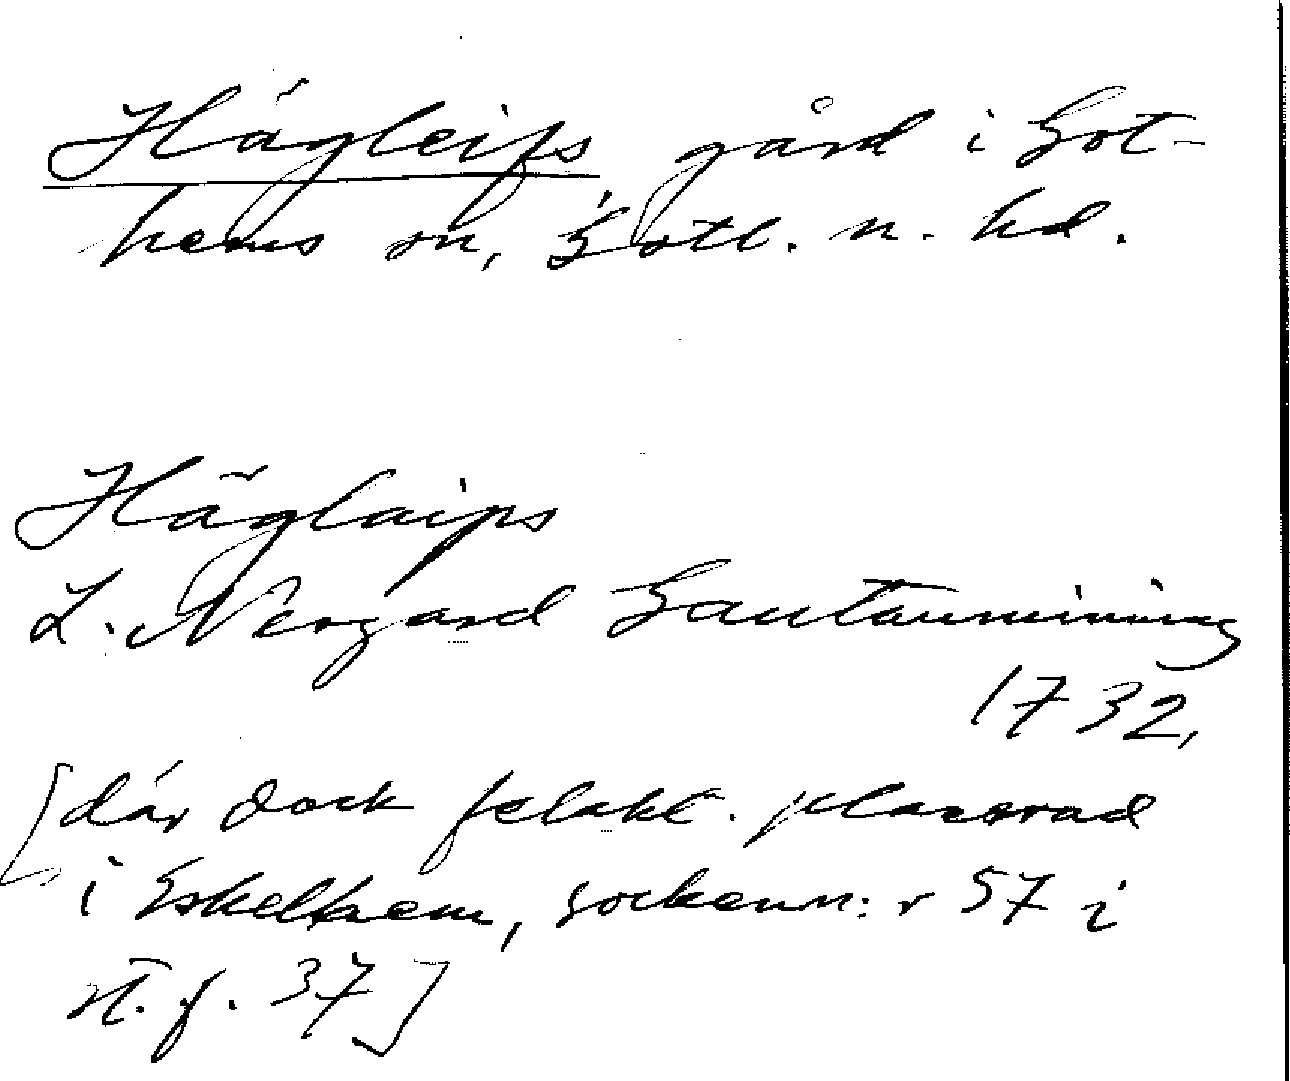 Hägleips gård i Got-
hems sn, Gotl. n. hd.
Häglaips
L. Nergard Gautauminning
1732,
[där dock felakt. placerad
i Eskelhem, sockenn:r 57 i
st. f. 37]